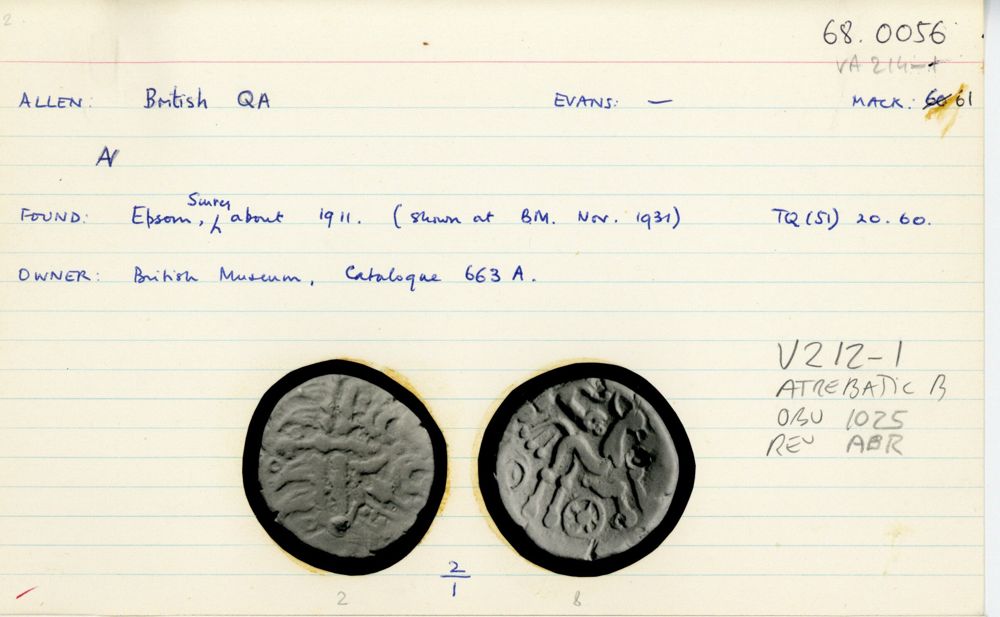 2
68.0056
VA 214-1
ALLEN: British QA EVANS: — MACK: 60 61
AV
FOUND: Epsom, Surrey, about 1911. (shown at BM. Nov. 1931) TQ(51) 20.60.
OWNER: British Museum, Catalogue 663 A.
V212-1
ATREBATIC B
OBV 1025
REV ABR
2
1
2 8